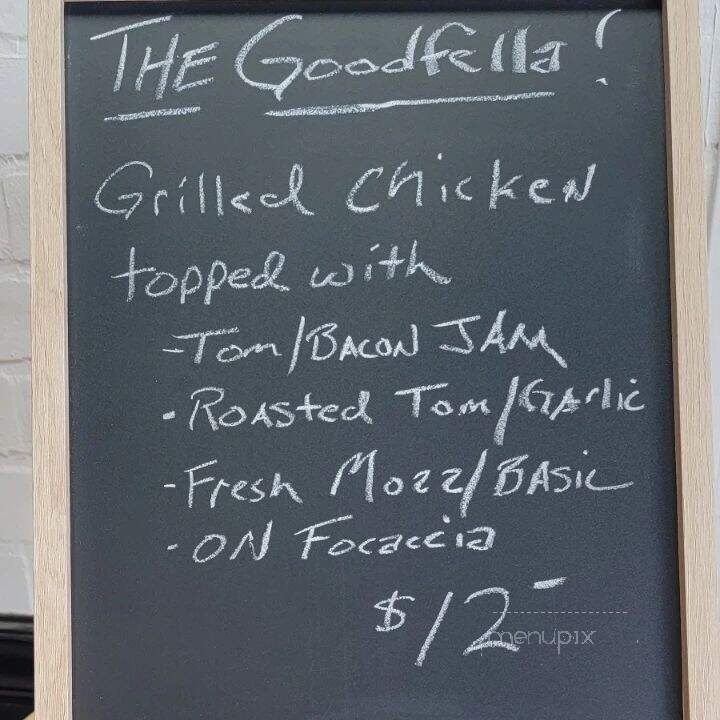 THE Goodfella!
Grilled Chicken
topped with
-Tom/BACON JAM
-Roasted Tom/Garlic
-Fresh Mozz/BASIC
-ON Focaccia
$12-
menupix